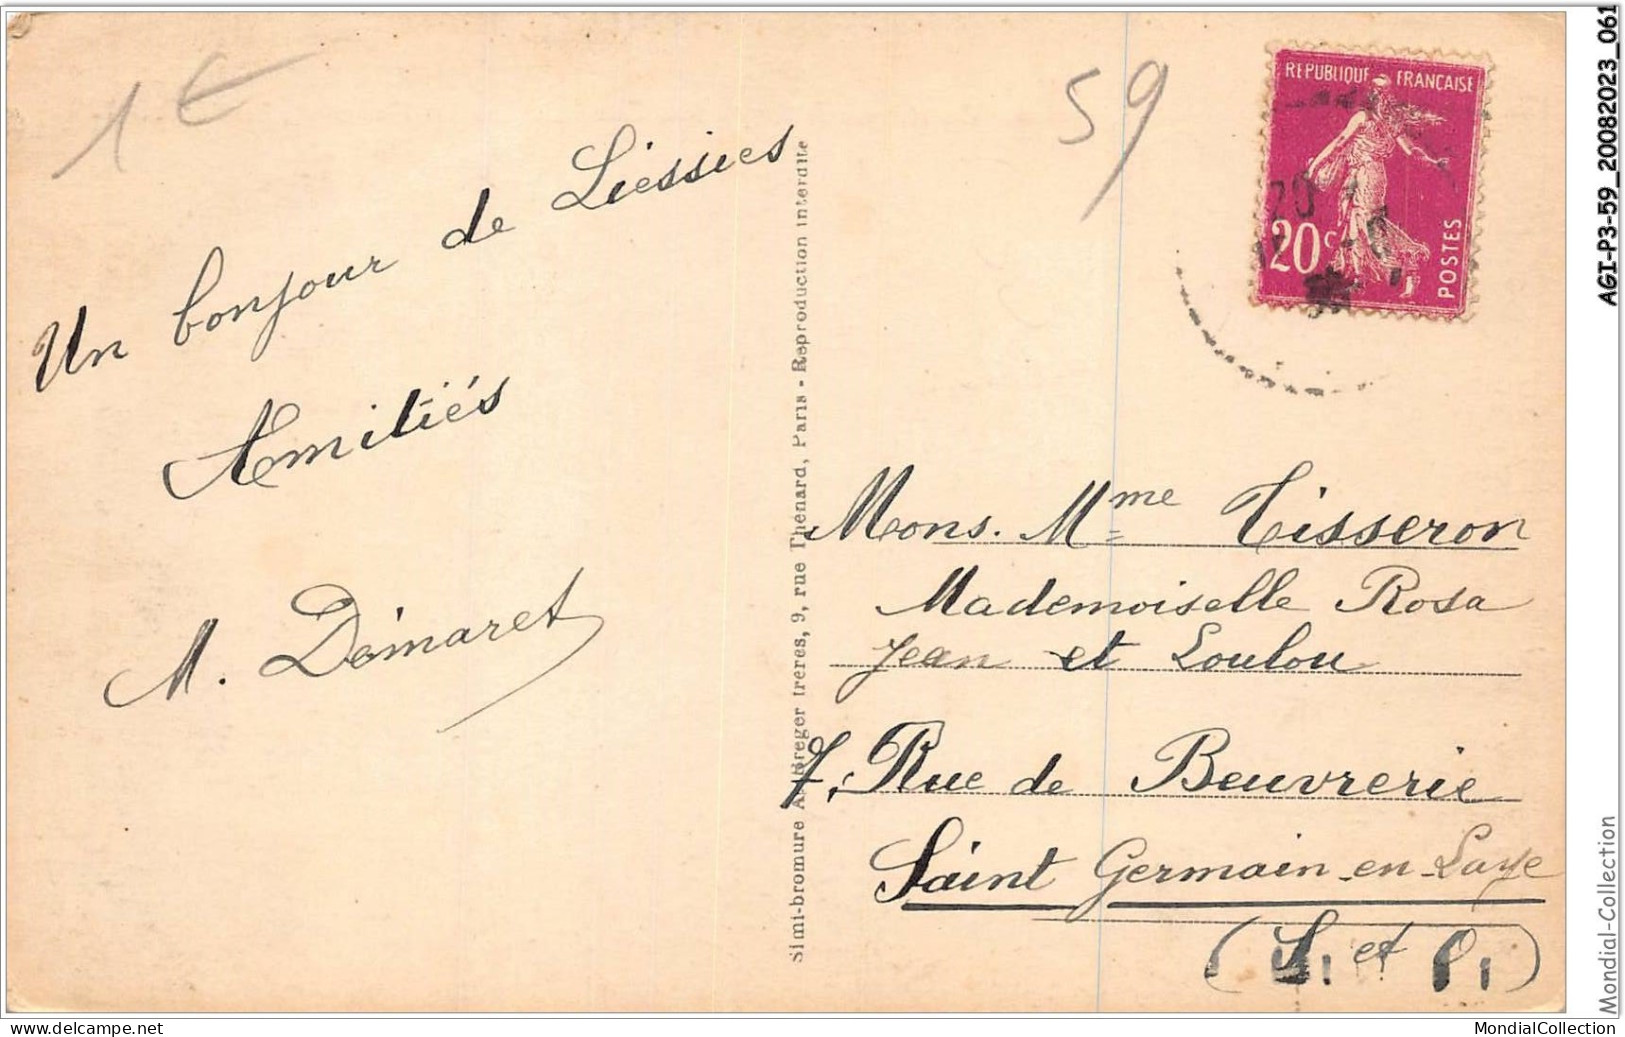 1€
59
REPUBLIQUE FRANÇAISE
20c
POSTES
Un bonjour de Liessies
Amitiés
M. Démaret
Simi-bromure A. Breger frères, 9, rue Thénard, Paris - Reproduction interdite
Mons. Mme Tisseron
Mademoiselle Rosa
Jean et Loulou
7, Rue de Beuvrerie
Saint Germain-en-Laye
(S. et O.)
AGI-P3-59_20082023_061
Mondial-Collection
www.delcampe.net
MondialCollection